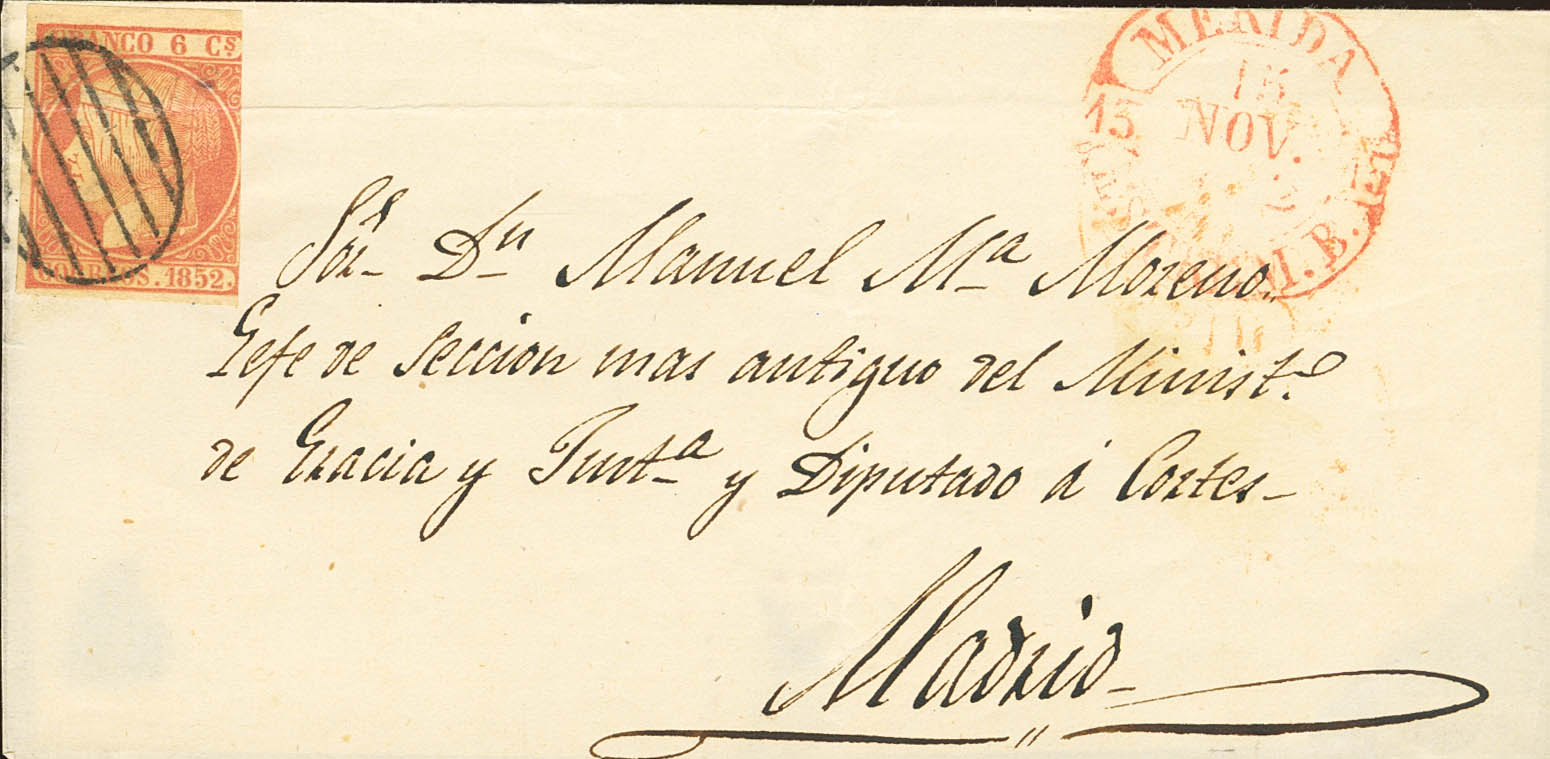 FRANCO 6 Cs.
CORREOS. 1852.
MERIDA
15
NOV.
15
M. B.
Sor. Dn Manuel Ma Moreno.
Gefe de Seccion mas antiguo del Minist.o
de Gracia y Justa y Diputado á Cortes-
Madrid-